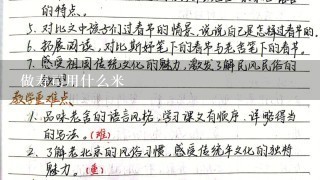 的特点。
5. 对比文中孩子们过春节的情景,说说自己是怎样过春节的。
6. 拓展阅读,对比斯妤笔下的春节与老舍笔下的春节。
7. 感受祖国传统文化的魅力,激发了解民风民俗的
做寿司用什么米
教学重难点
1. 品味老舍的语言风格,学习课文有顺序、详略得当
的写法。(难)
2. 了解老北京的风俗习惯,感受传统年文化的独特
魅力。(重)